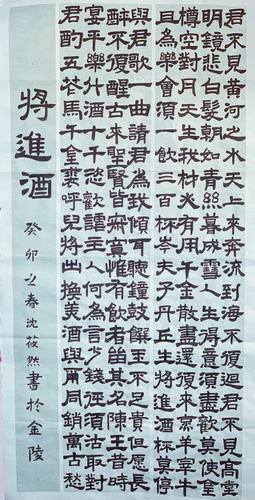 君不見黃河之水天上來奔流到海不復迴君不見高堂
明鏡悲白髮朝如青絲暮成雪人生得意須盡歡莫使金
樽空對月天生我材必有用千金散盡還復來烹羊宰牛
且為樂會須一飲三百杯岑夫子丹丘生將進酒杯莫停
與君歌一曲請君為我傾耳聽鐘鼓饌玉不足貴但願長
醉不復醒古來聖賢皆寂寞惟有飲者留其名陳王昔時
宴平樂斗酒十千恣歡謔主人何為言少錢徑須沽取對
君酌五花馬千金裘呼兒將出換美酒與爾同銷萬古愁
將進酒
癸卯之春沈筱然書於金陵